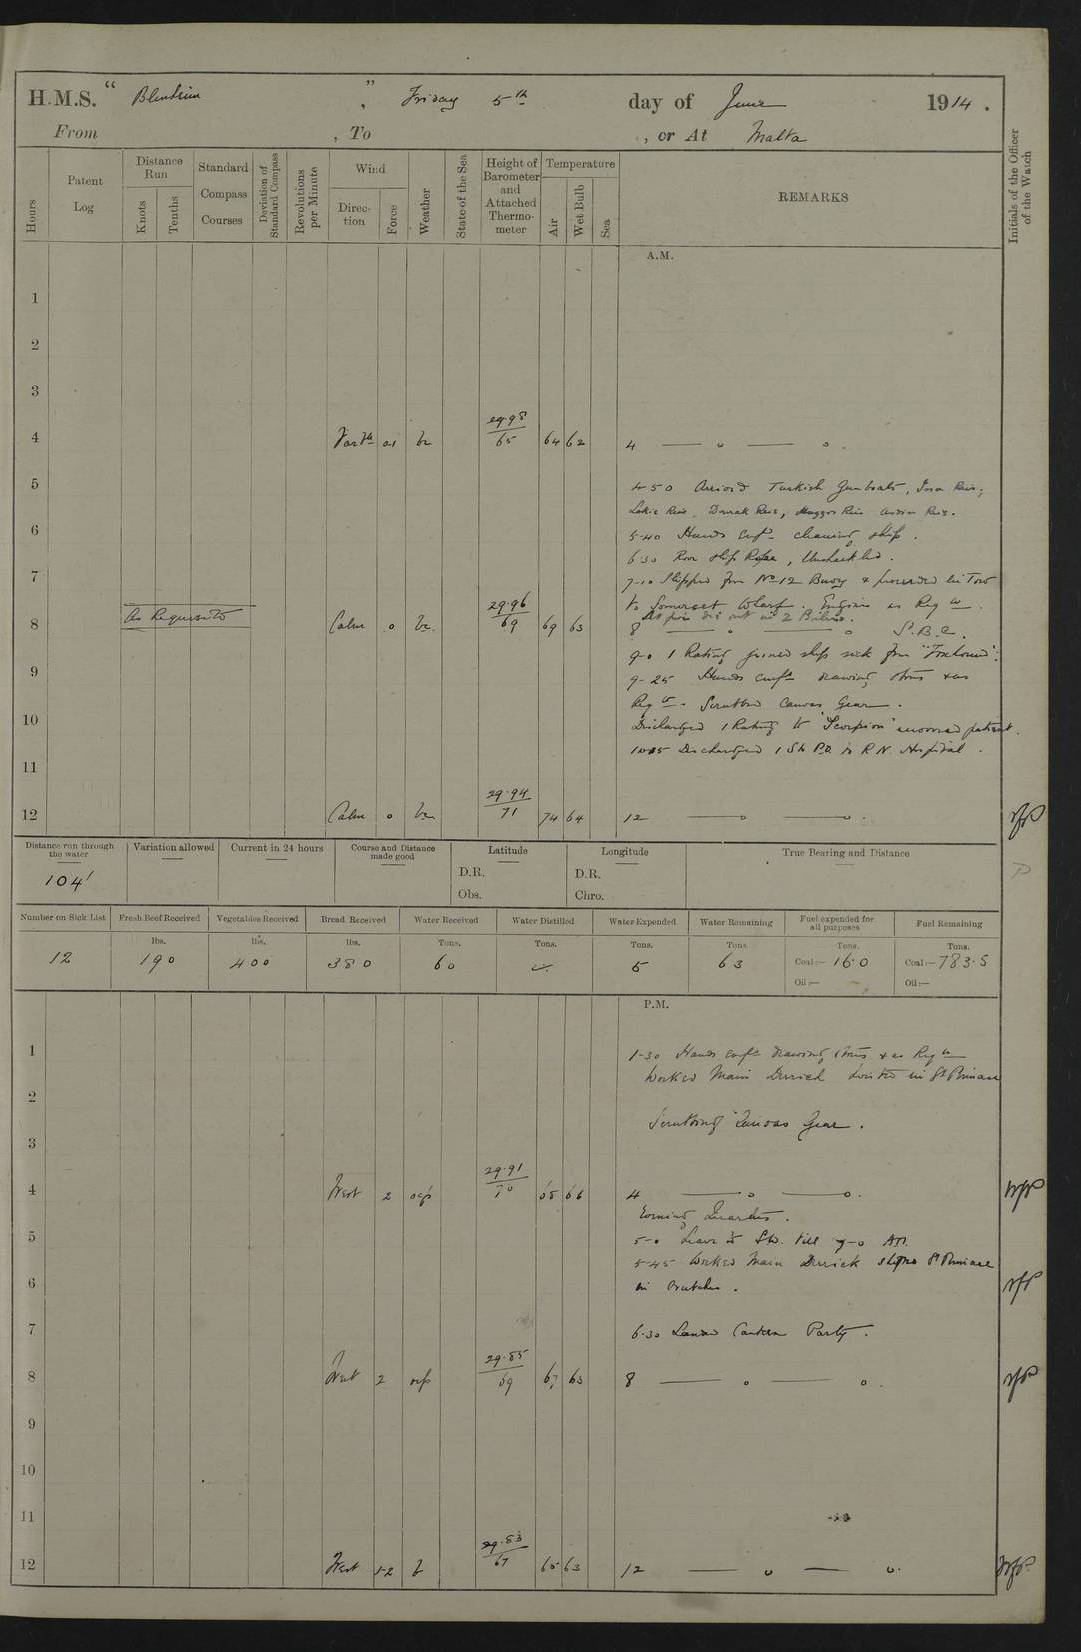 H.M.S. " Blenheim ", Friday 5th day of June 1914.
From , To , or At Malta
Hours
Patent Log
Distance Run
Knots
Tenths
Standard Compass Courses
Deviation of Standard Compass
Revolutions per Minute
Wind
Direction
Force
Weather
State of the Sea
Height of Barometer and Attached Thermometer
Temperature
Air
Wet Bulb
Sea
REMARKS
Initials of the Officer of the Watch
A.M.
1
2
3
4 North 01 bc 29.98 65 64 62 4 — o — o.
5 4 50 Arrived Turkish Gunboats, Isa Reis,
Reis, Durak Reis, Reis Aidan Reis.
6 5-40 Hands empd cleaning ship.
6.30 Rove slip Rope, Unshackled.
7 7-10 Slipped from No 12 Buoy & proceeded in Tow
to Somerset Wharf. Engines as Reqte.
8 As Requisite Calm 0 bc 29.96 69 69 63 8 — o — o S.B.C.
in 2 Boilers.
9 9-0 1 Rating joined ship sick from "Foxhound".
9-25 Hands empd drawing stores & as
Reqte. Scrubbed Canvas Gear.
10 Discharged 1 Rating to "Scorpion" recovered patient.
10.15 Discharged 1 Sto P.O. to R.N. Hospital.
11
12 Calm 0 bc 29.94 71 74 64 12 — o — o.
Distance run through the water
104'
Variation allowed
Current in 24 hours
Course and Distance made good
Latitude
D.R.
Obs.
Longitude
D.R.
Chro.
True Bearing and Distance
Number on Sick List
12
Fresh Beef Received
lbs.
190
Vegetables Received
lbs.
400
Bread Received
lbs.
380
Water Received
Tons.
60
Water Distilled
Tons.
Water Expended
Tons.
5
Water Remaining
Tons
63
Fuel expended for all purposes
Tons.
Coal:— 16.0
Oil:—
Fuel Remaining
Tons.
Coal:— 783.5
Oil:—
P.M.
1 1-30 Hands empd drawing stores & as Reqte
Worked Main Derrick hoisted in St Pinnace
2
Scrubbing Canvas Gear.
3
4 West 2 ocp 29.91 70 68 66 4 — o — o.
Evening Quarters.
5 5-0 Leave to Stbd. till 7-0 AM.
5-45 Worked Main Derrick St Pinnace
6 in Crutches.
7 6.30 Landed Canteen Party.
8 West 2 ocp 29.85 69 67 63 8 — o — o.
9
10
11
12 West 1-2 b 29.83 67 65 63 12 — o — o.